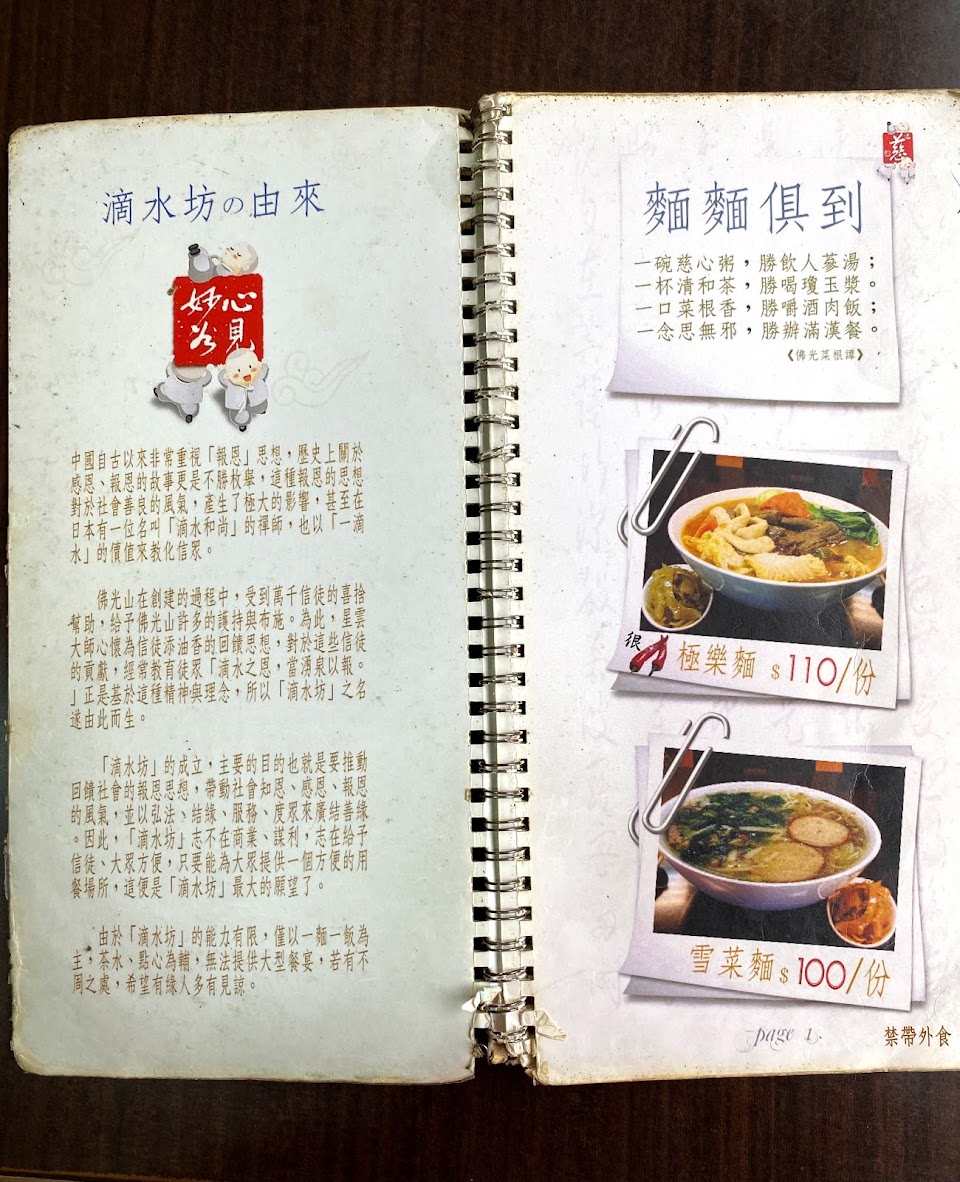 滴水坊の由來
妙心
為見
中國自古以來非常重視「報恩」思想，歷史上關於
感恩、報恩的故事更是不勝枚舉，這種報恩的思想
對於社會善良的風氣，產生了極大的影響，甚至在
日本有一位名叫「滴水和尚」的禪師，也以「一滴
水」的價值來教化信眾。
佛光山在創建的過程中，受到萬千信徒的喜捨
幫助，給予佛光山許多的護持與布施。為此，星雲
大師心懷為信徒添油香的回饋思想，對於這些信徒
的貢獻，經常教育徒眾「滴水之恩，當湧泉以報。
」正是基於這種精神與理念，所以「滴水坊」之名
遂由此而生。
「滴水坊」的成立，主要的目的也就是要推動
回饋社會的報恩思想，帶動社會知恩、感恩、報恩
的風氣，並以弘法、結緣、服務、度眾來廣結善緣
。因此，「滴水坊」志不在商業、謀利，志在給予
信徒、大眾方便，只要能為大眾提供一個方便的用
餐場所，這便是「滴水坊」最大的願望了。
由於「滴水坊」的能力有限，僅以一麵一飯為
主；茶水、點心為輔，無法提供大型餐宴，若有不
周之處，希望有緣人多有見諒。
慈
麵麵俱到
一碗慈心粥，勝飲人蔘湯；
一杯清和茶，勝喝瓊玉漿。
一口菜根香，勝嚼酒肉飯；
一念思無邪，勝辦滿漢餐。
《佛光菜根譚》
很
極樂麵 $110/份
雪菜麵 $100/份
page 1.
禁帶外食